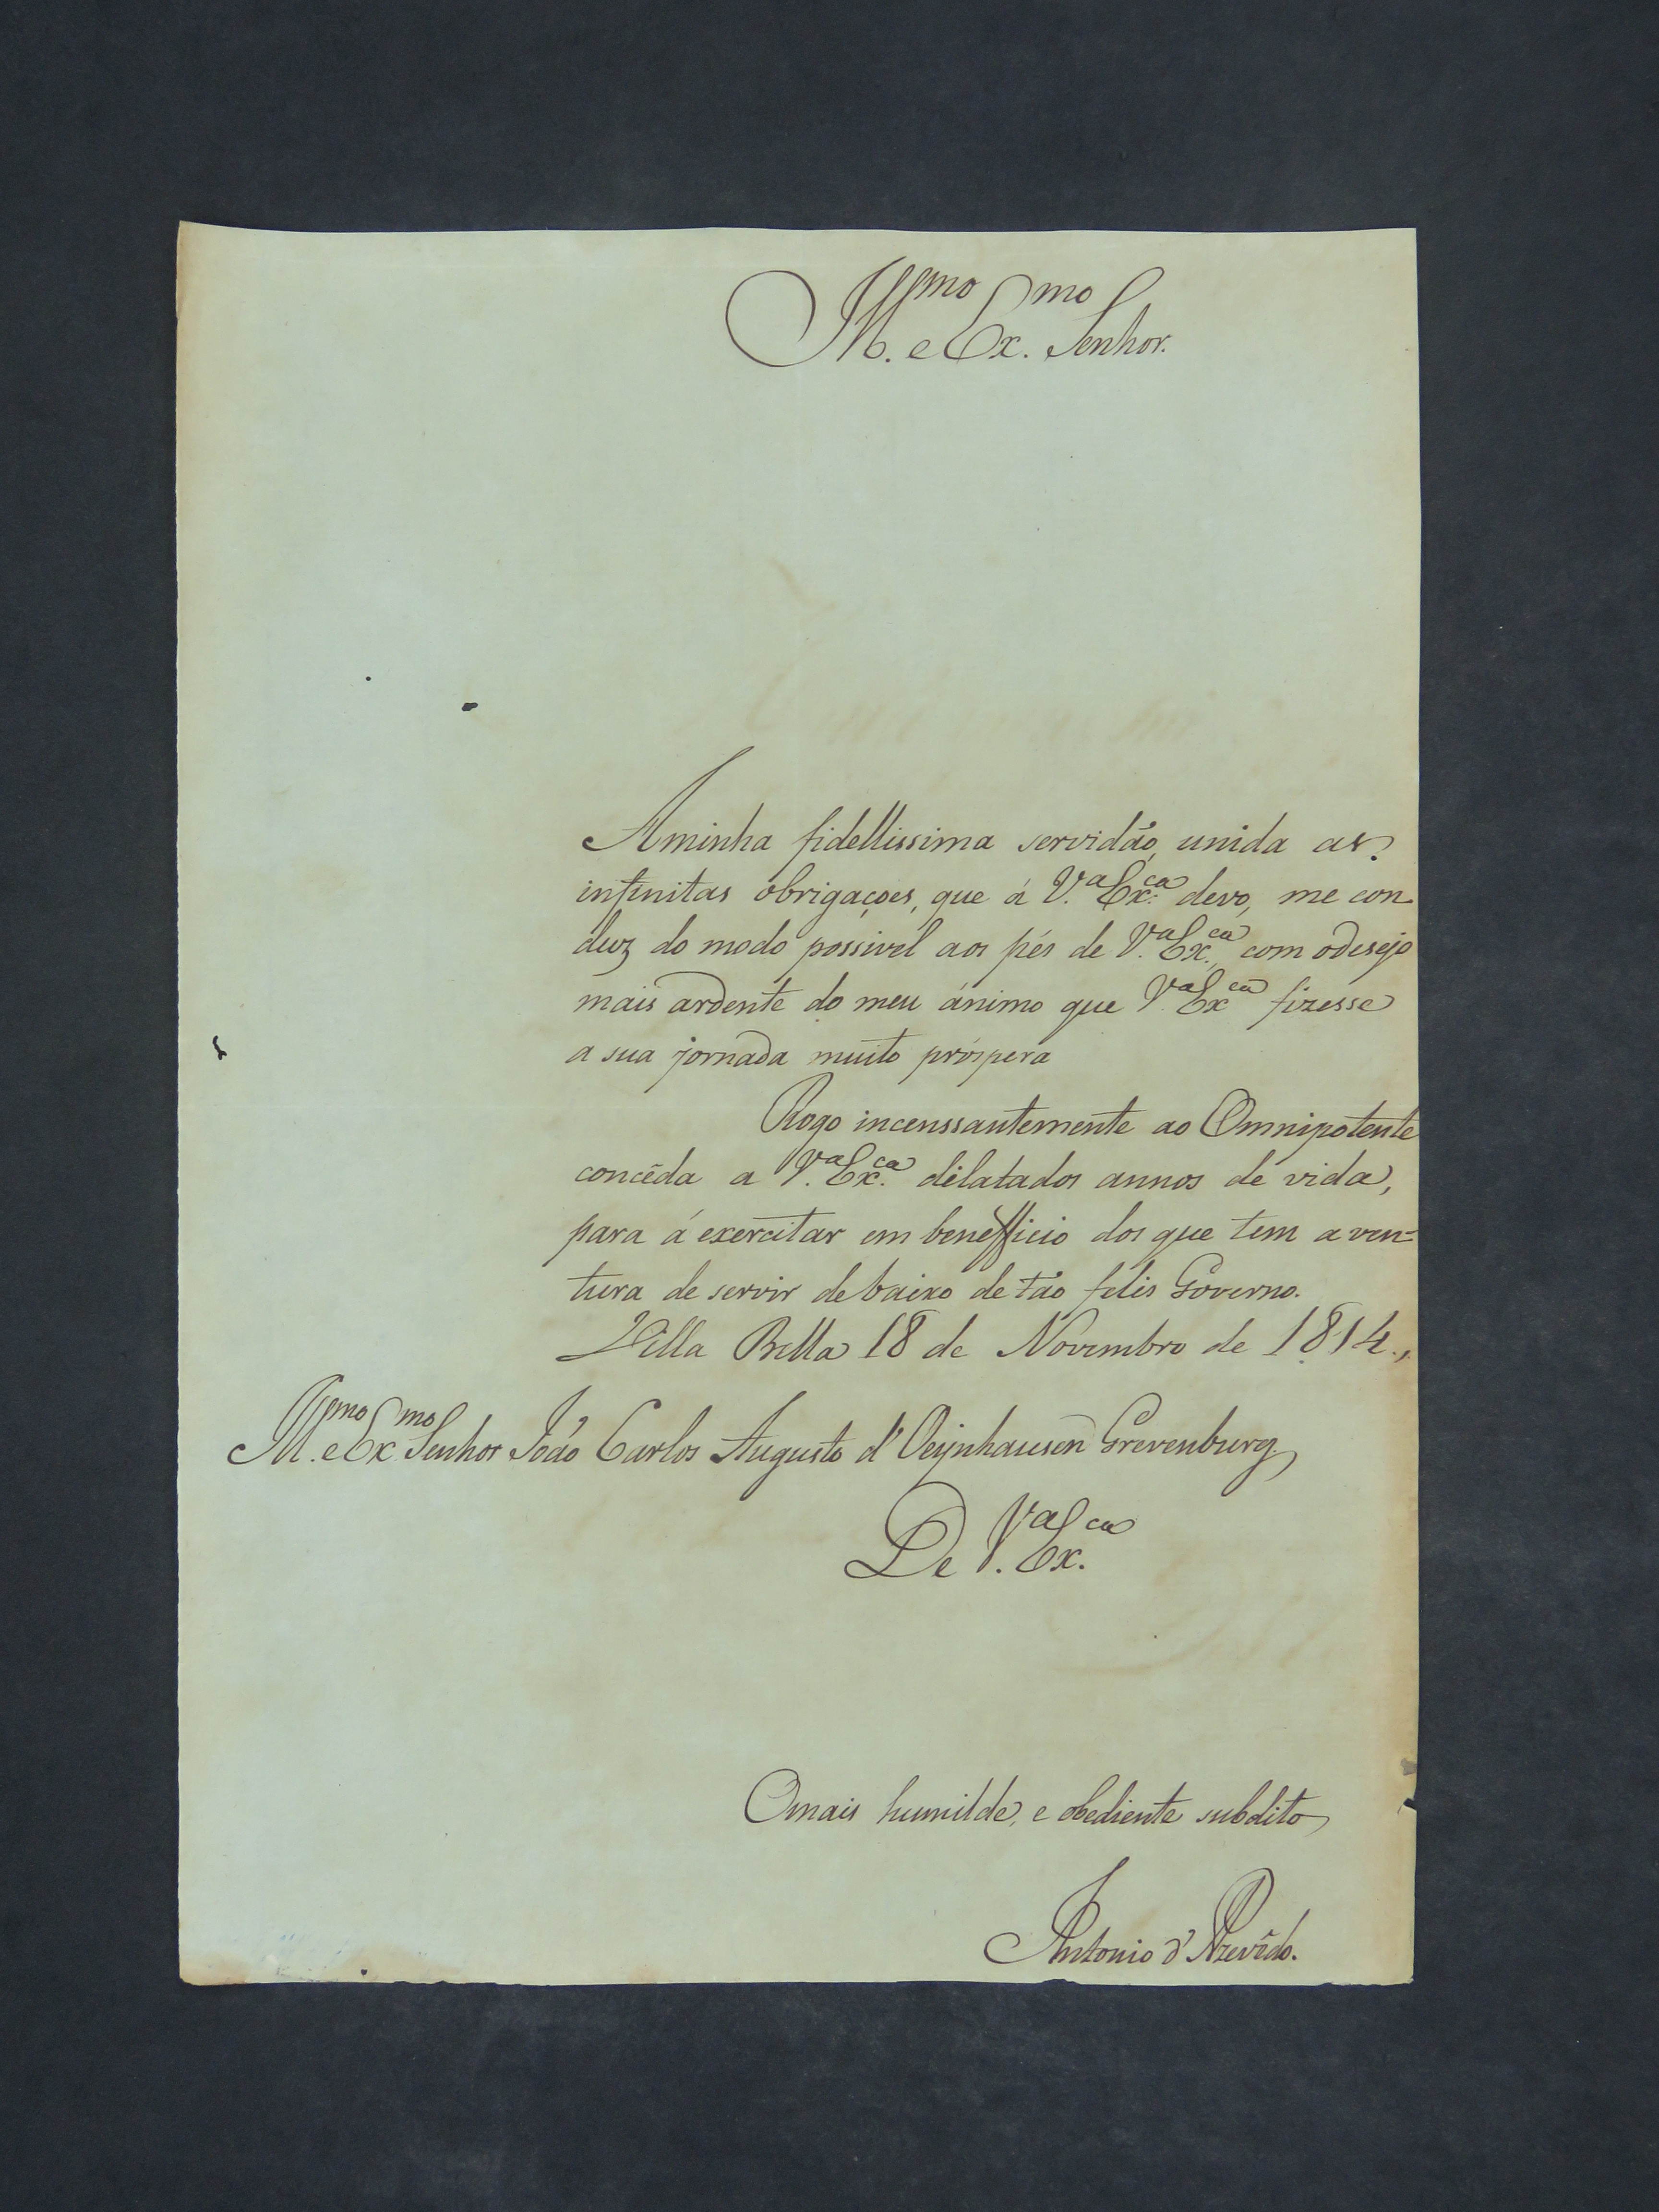 Ill.mo e Ex.mo Senhor.
Aminha fidellissima servidão, unida as
infinitas obrigaçoes, que á V.a Ex.ca devo, me con-
duz do modo possivel aos pés de V.a Ex.ca, com odesejo
mais ardente do meu ánimo que V.a Ex.ca fizesse
a sua jornada muito próspera
Rogo incenssantemente ao Omnipotente
concêda a V.a Ex.ca dilatados annos de vida,
para á exercitar em benefficio dos que tem a ven=
tura de servir de baixo de tão felis Governo.
Villa Bella 18 de Novembro de 1814.,
Ill.mo e Ex.mo Senhor João Carlos Augusto d'Oeynhausen Grevenburg
De V.a Ex.ca
Omais humilde, e obediente subdito
Antonio d'Azevêdo.